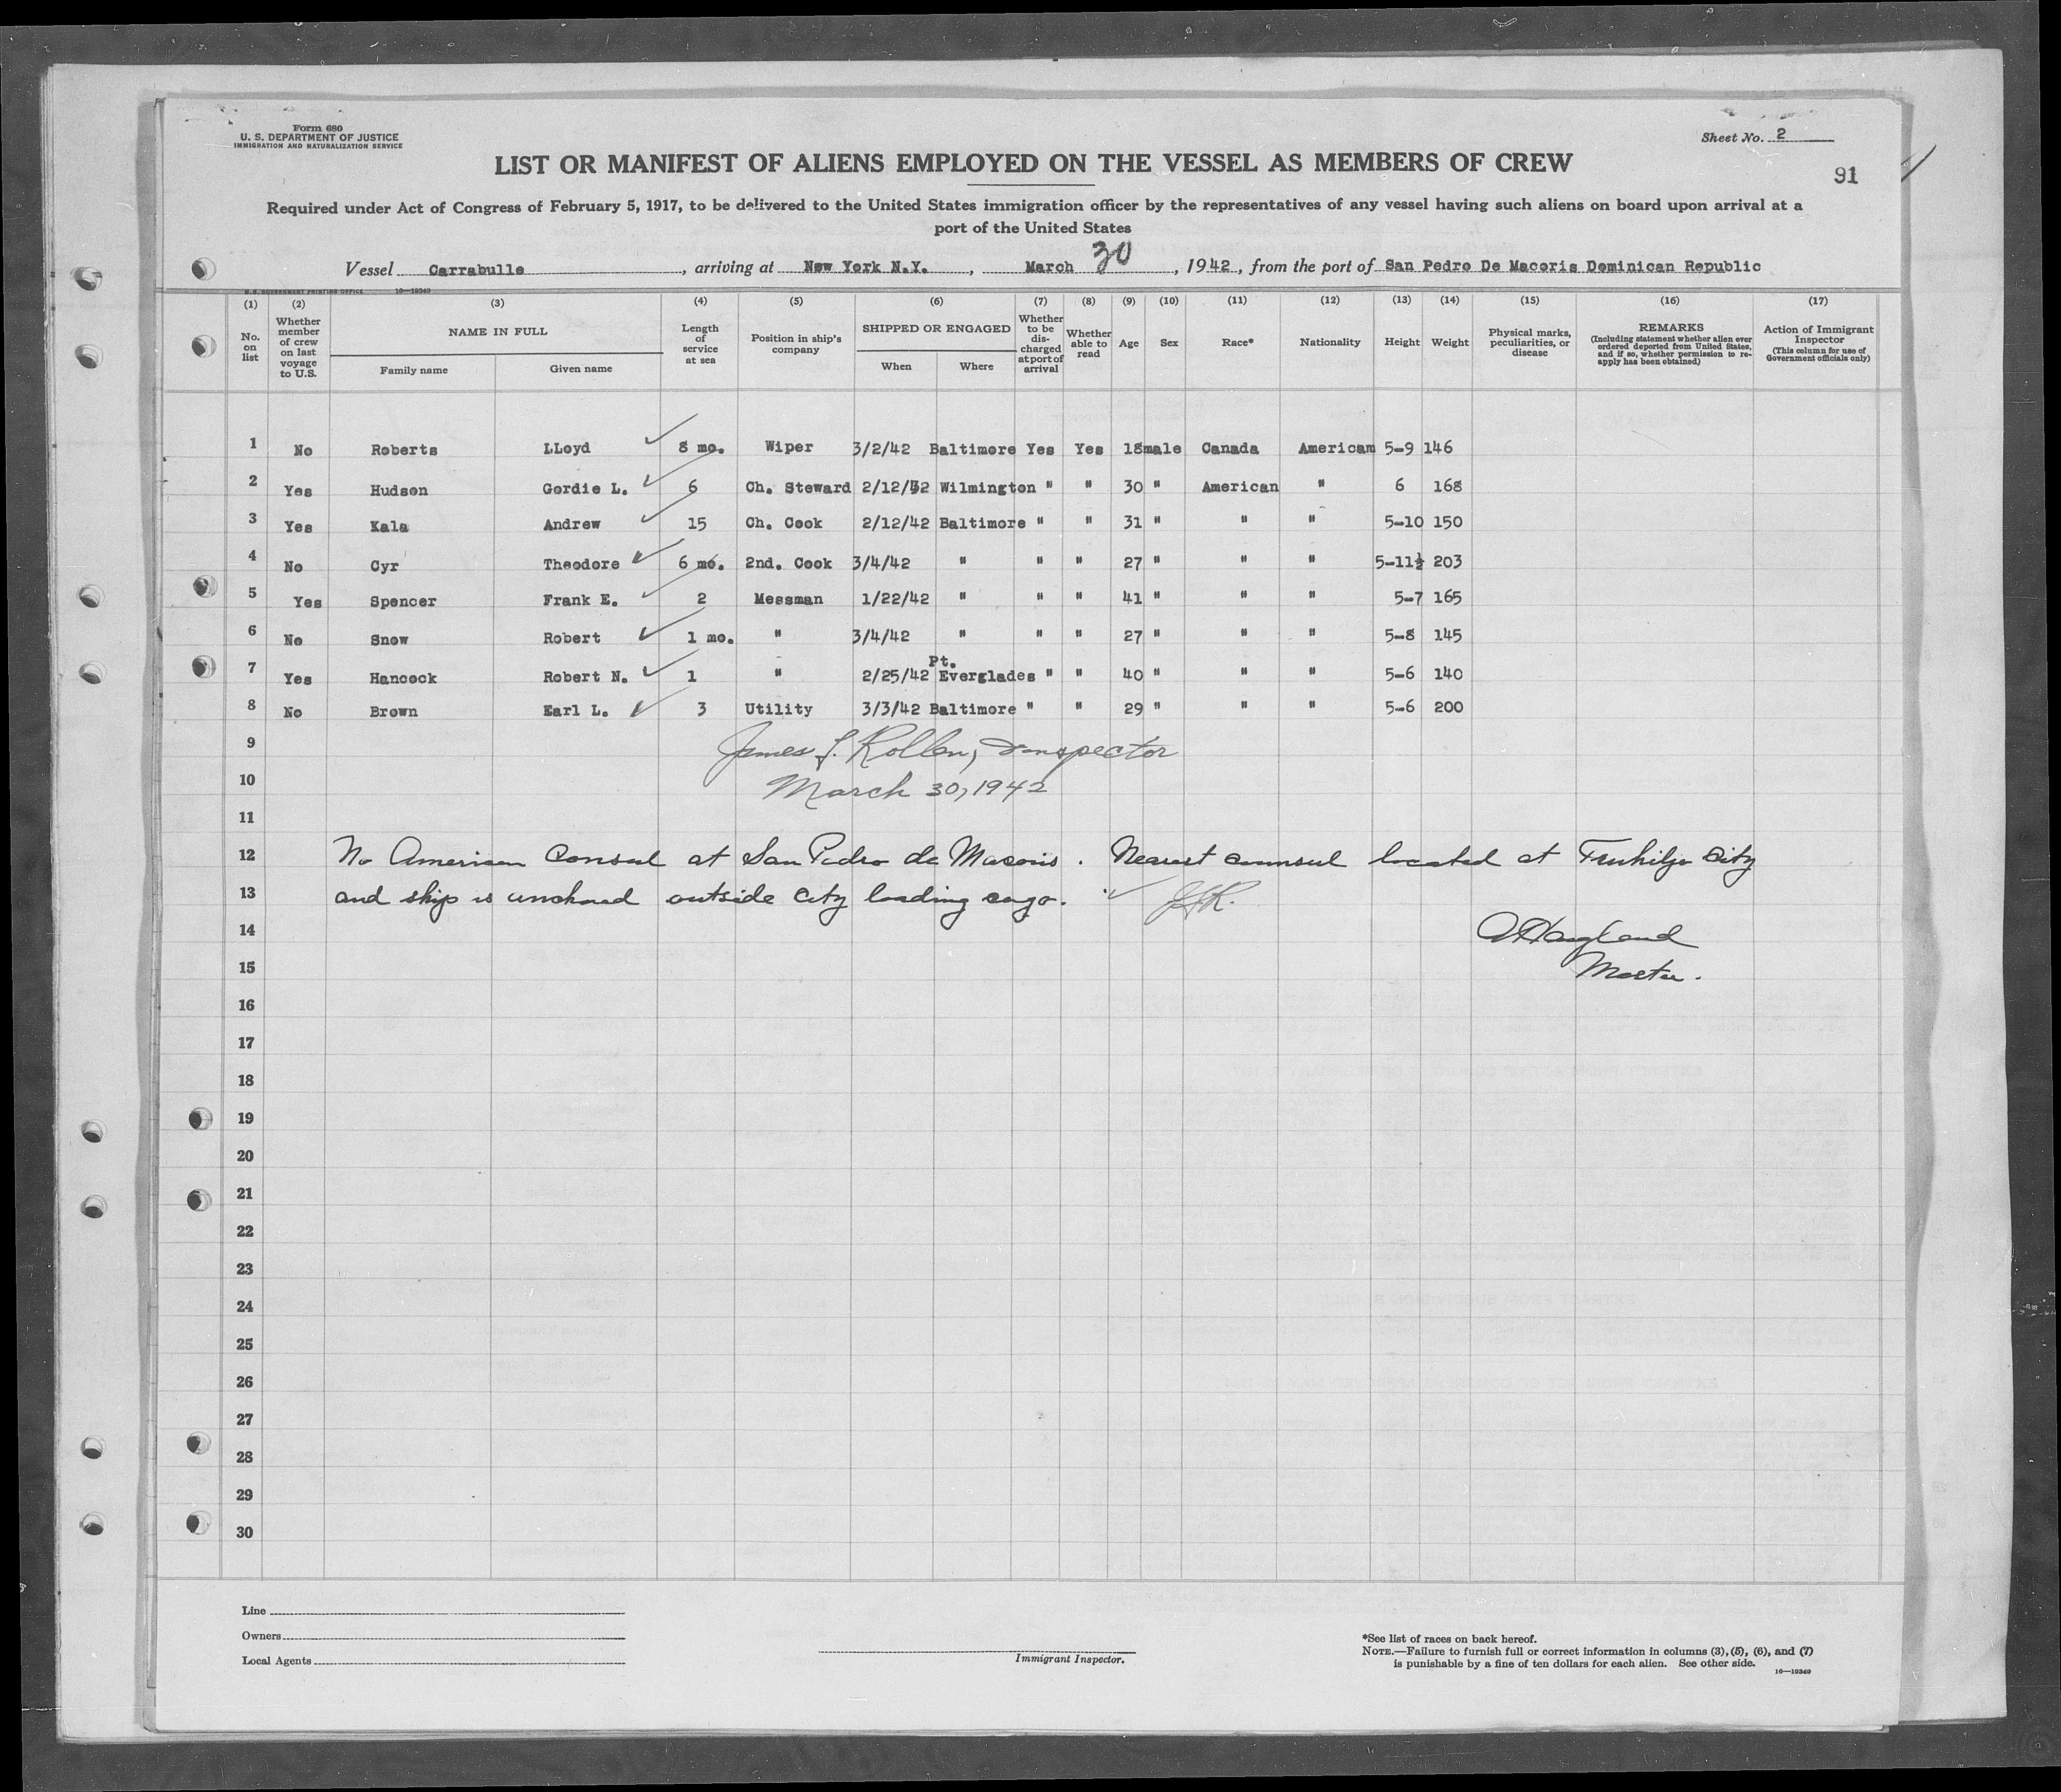 Form 680
U. S. DEPARTMENT OF JUSTICE
IMMIGRATION AND NATURALIZATION SERVICE
Sheet No. 2
LIST OR MANIFEST OF ALIENS EMPLOYED ON THE VESSEL AS MEMBERS OF CREW
91
Required under Act of Congress of February 5, 1917, to be delivered to the United States immigration officer by the representatives of any vessel having such aliens on board upon arrival at a
port of the United States
Vessel Carrabulle, arriving at New York N.Y., March 30, 1942, from the port of San Pedro De Macoris Dominican Republic
U. S. GOVERNMENT PRINTING OFFICE 16—19349
(1) (2) (3) (4) (5) (6) (7) (8) (9) (10) (11) (12) (13) (14) (15) (16) (17)
No. on list
Whether member of crew on last voyage to U.S.
NAME IN FULL
Family name
Given name
Length of service at sea
Position in ship's company
SHIPPED OR ENGAGED
When
Where
Whether to be discharged at port of arrival
Whether able to read
Age
Sex
Race*
Nationality
Height
Weight
Physical marks, peculiarities, or disease
REMARKS
(Including statement whether alien ever ordered deported from United States, and if so, whether permission to re-apply has been obtained)
Action of Immigrant Inspector
(This column for use of Government officials only)
1 No Roberts LLoyd 8 mo. Wiper 3/2/42 Baltimore Yes Yes 18 male Canada American 5-9 146
2 Yes Hudson Gordie L. 6 Ch. Steward 2/12/42 Wilmington " " 30 " American " 6 168
3 Yes Kala Andrew 15 Ch. Cook 2/12/42 Baltimore " " 31 " " " 5-10 150
4 No Cyr Theodore 6 mo. 2nd. Cook 3/4/42 " " " 27 " " " 5-11½ 203
5 Yes Spencer Frank E. 2 Messman 1/22/42 " " " 41 " " " 5-7 165
6 No Snow Robert 1 mo. " 3/4/42 " " " 27 " " " 5-8 145
7 Yes Hancock Robert N. 1 " 2/25/42 Pt. Everglades " " 40 " " " 5-6 140
8 No Brown Earl L. 3 Utility 3/3/42 Baltimore " " 29 " " " 5-6 200
9 James J. Rollen, Inspector
10 March 30, 1942
11
12 No American Consul at San Pedro de Macoris. Nearest counsul located at Truhiljo City
13 and ship is anchored outside city loading cargo. JJR.
14 Haagland
15 Master.
16
17
18
19
20
21
22
23
24
25
26
27
28
29
30
Line
Owners
Local Agents
Immigrant Inspector.
*See list of races on back hereof.
NOTE.—Failure to furnish full or correct information in columns (3), (5), (6), and (7)
is punishable by a fine of ten dollars for each alien. See other side.
16—19349